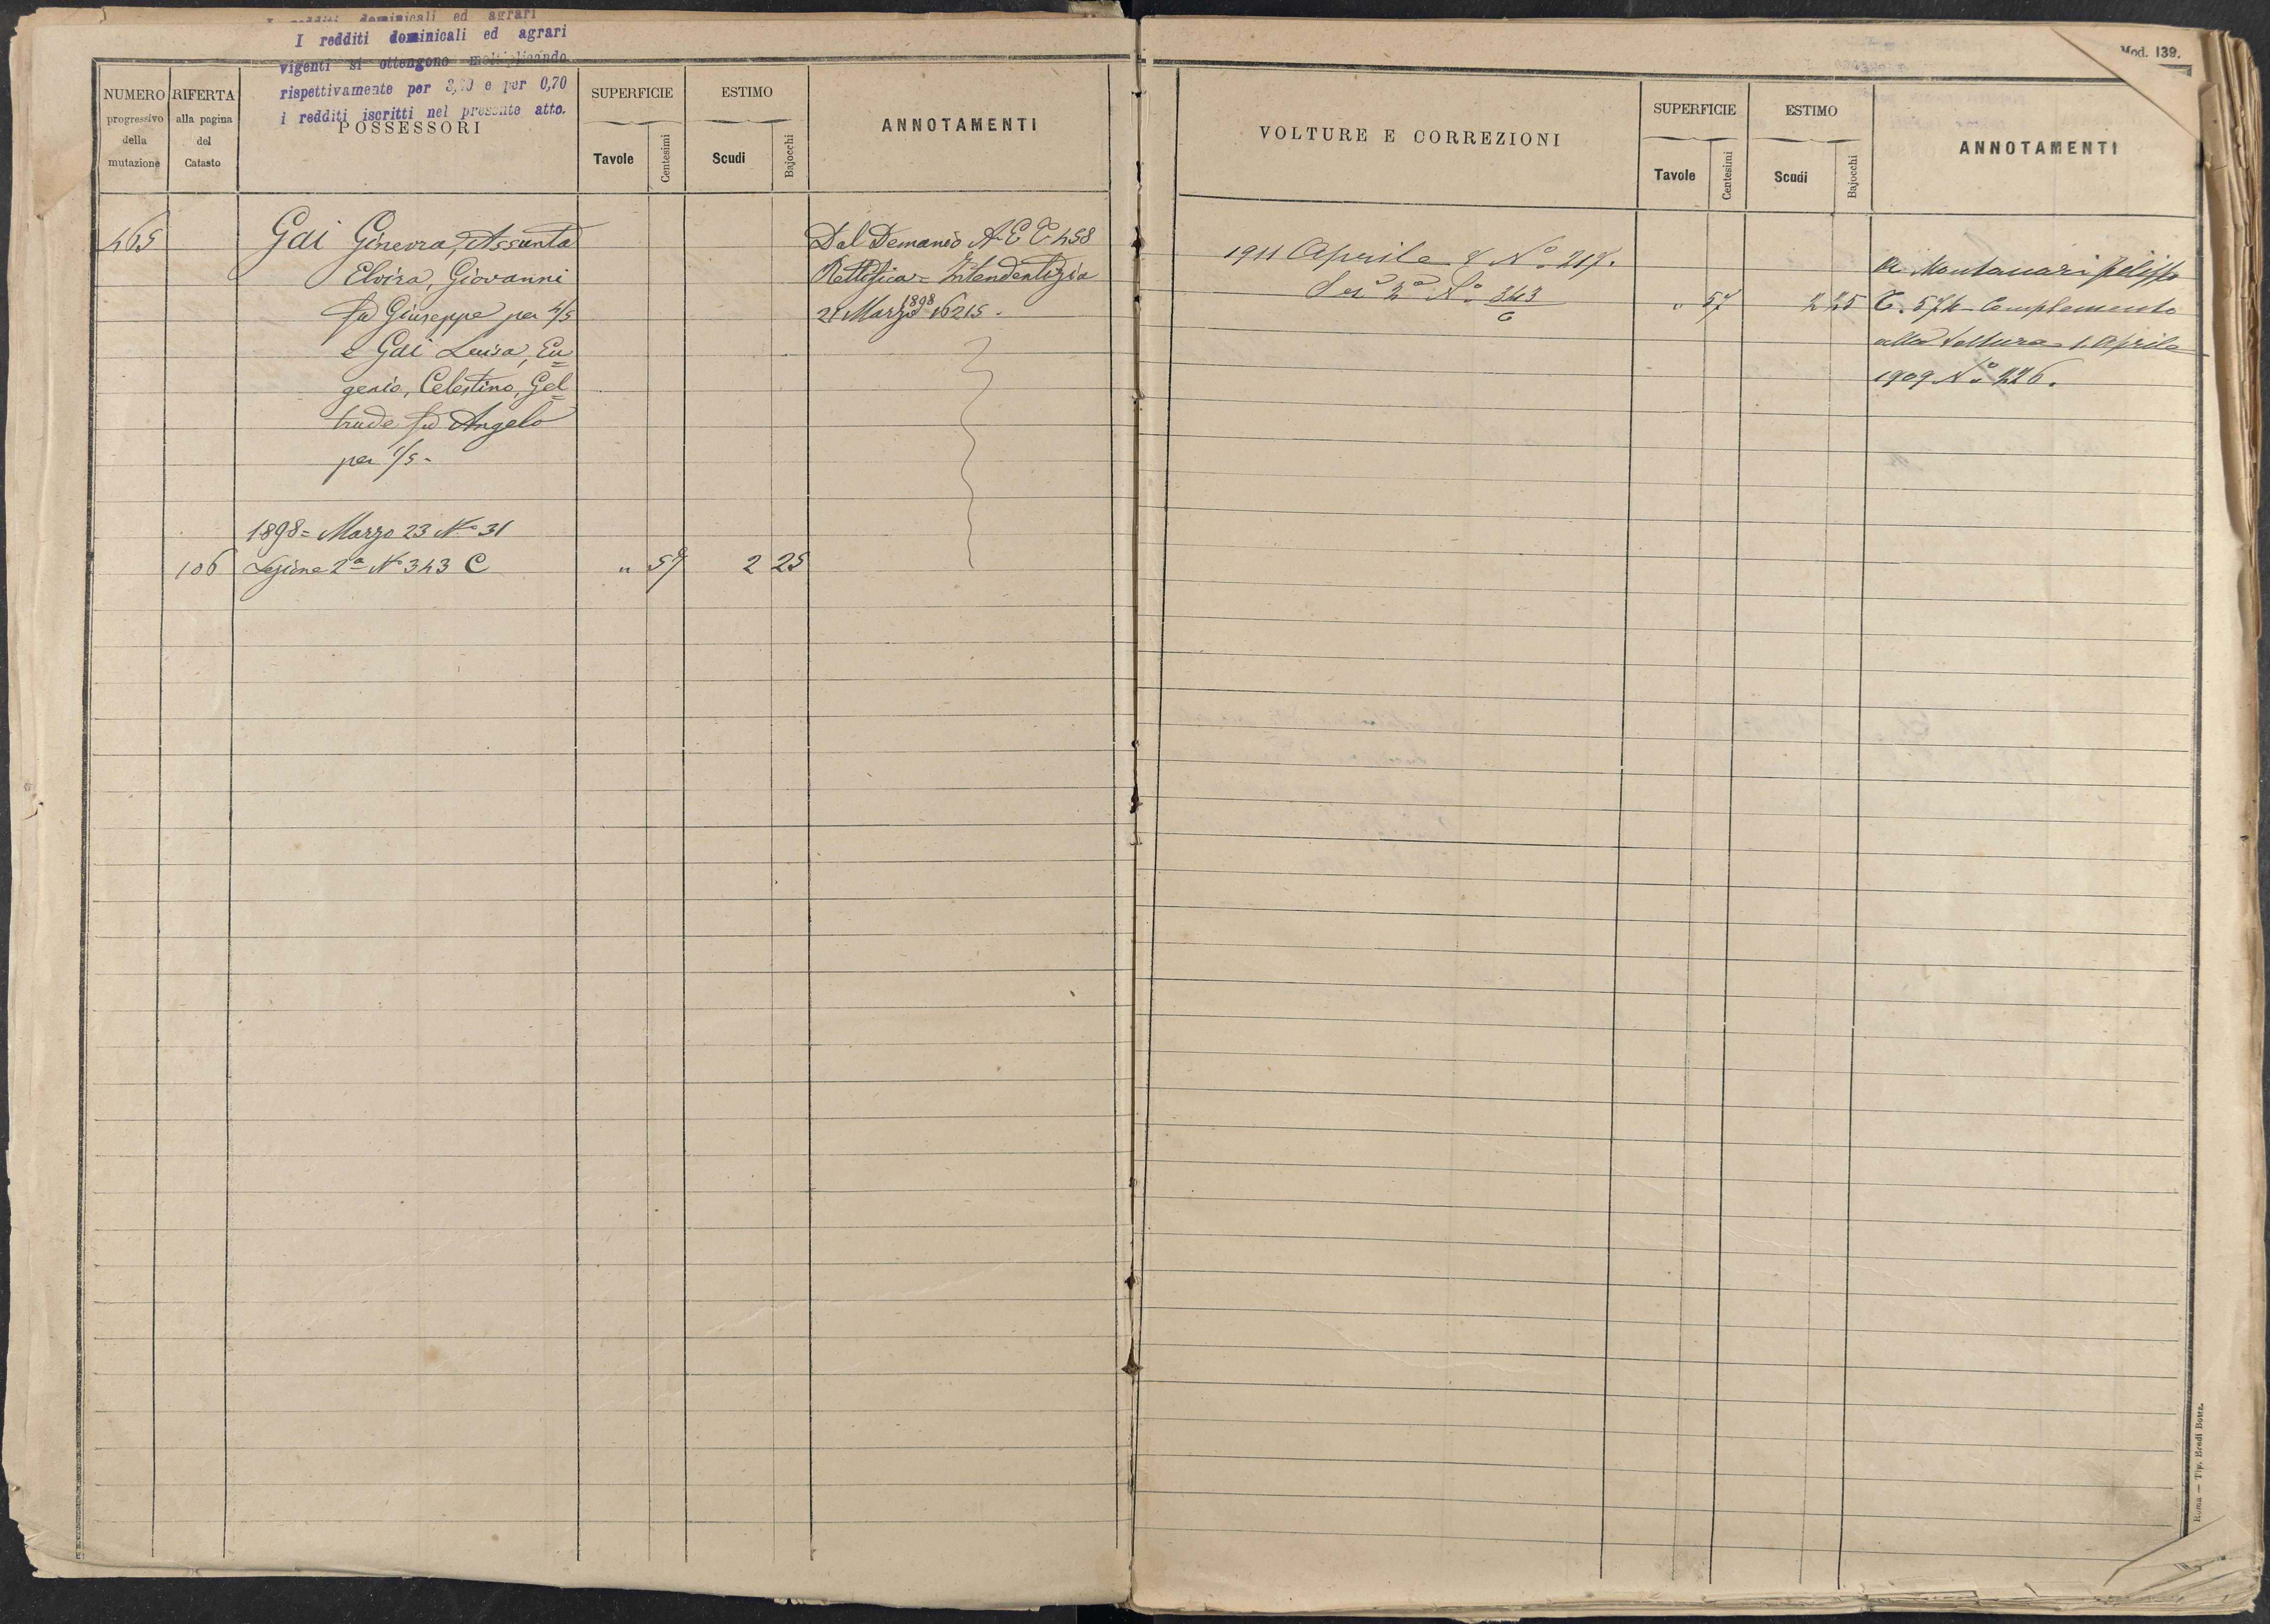 I redditi dominicali ed agrari
I redditi dominicali ed agrari
vigenti si ottengono moltiplicando
rispettivamente per 3,20 e per 0,70
i redditi iscritti nel presente atto.
NUMERO progressivo della mutazione
RIFERTA alla pagina del Catasto
POSSESSORI
SUPERFICIE
Tavole
Centesimi
ESTIMO
Scudi
Bajocchi
ANNOTAMENTI
465
Gai Ginevra, Assunta
Elvira, Giovanni
fu Giuseppe per 4/5
e Gai Luisa, Eu=
genio, Celestino, Gel=
trude fu Angelo
per 1/5 -
Dal Demanio A.E C. 458
Rettifica = Intendentizia
21 Marzo 1898 16215.
1898 = Marzo 23 No. 31
106 Sezione 2a No 343 C " 57 2 25
Mod. 139.
VOLTURE E CORREZIONI
SUPERFICIE
Tavole
Centesimi
ESTIMO
Scudi
Bajocchi
ANNOTAMENTI
1911 Aprile 8 No. 217.
Sez. 2a No. 343/C " 57 2 25
A Montanari Filippo
C. 574 - Complemento
alla voltura 1. Aprile
1909 No. 226.
Roma — Tip. Eredi Botta.